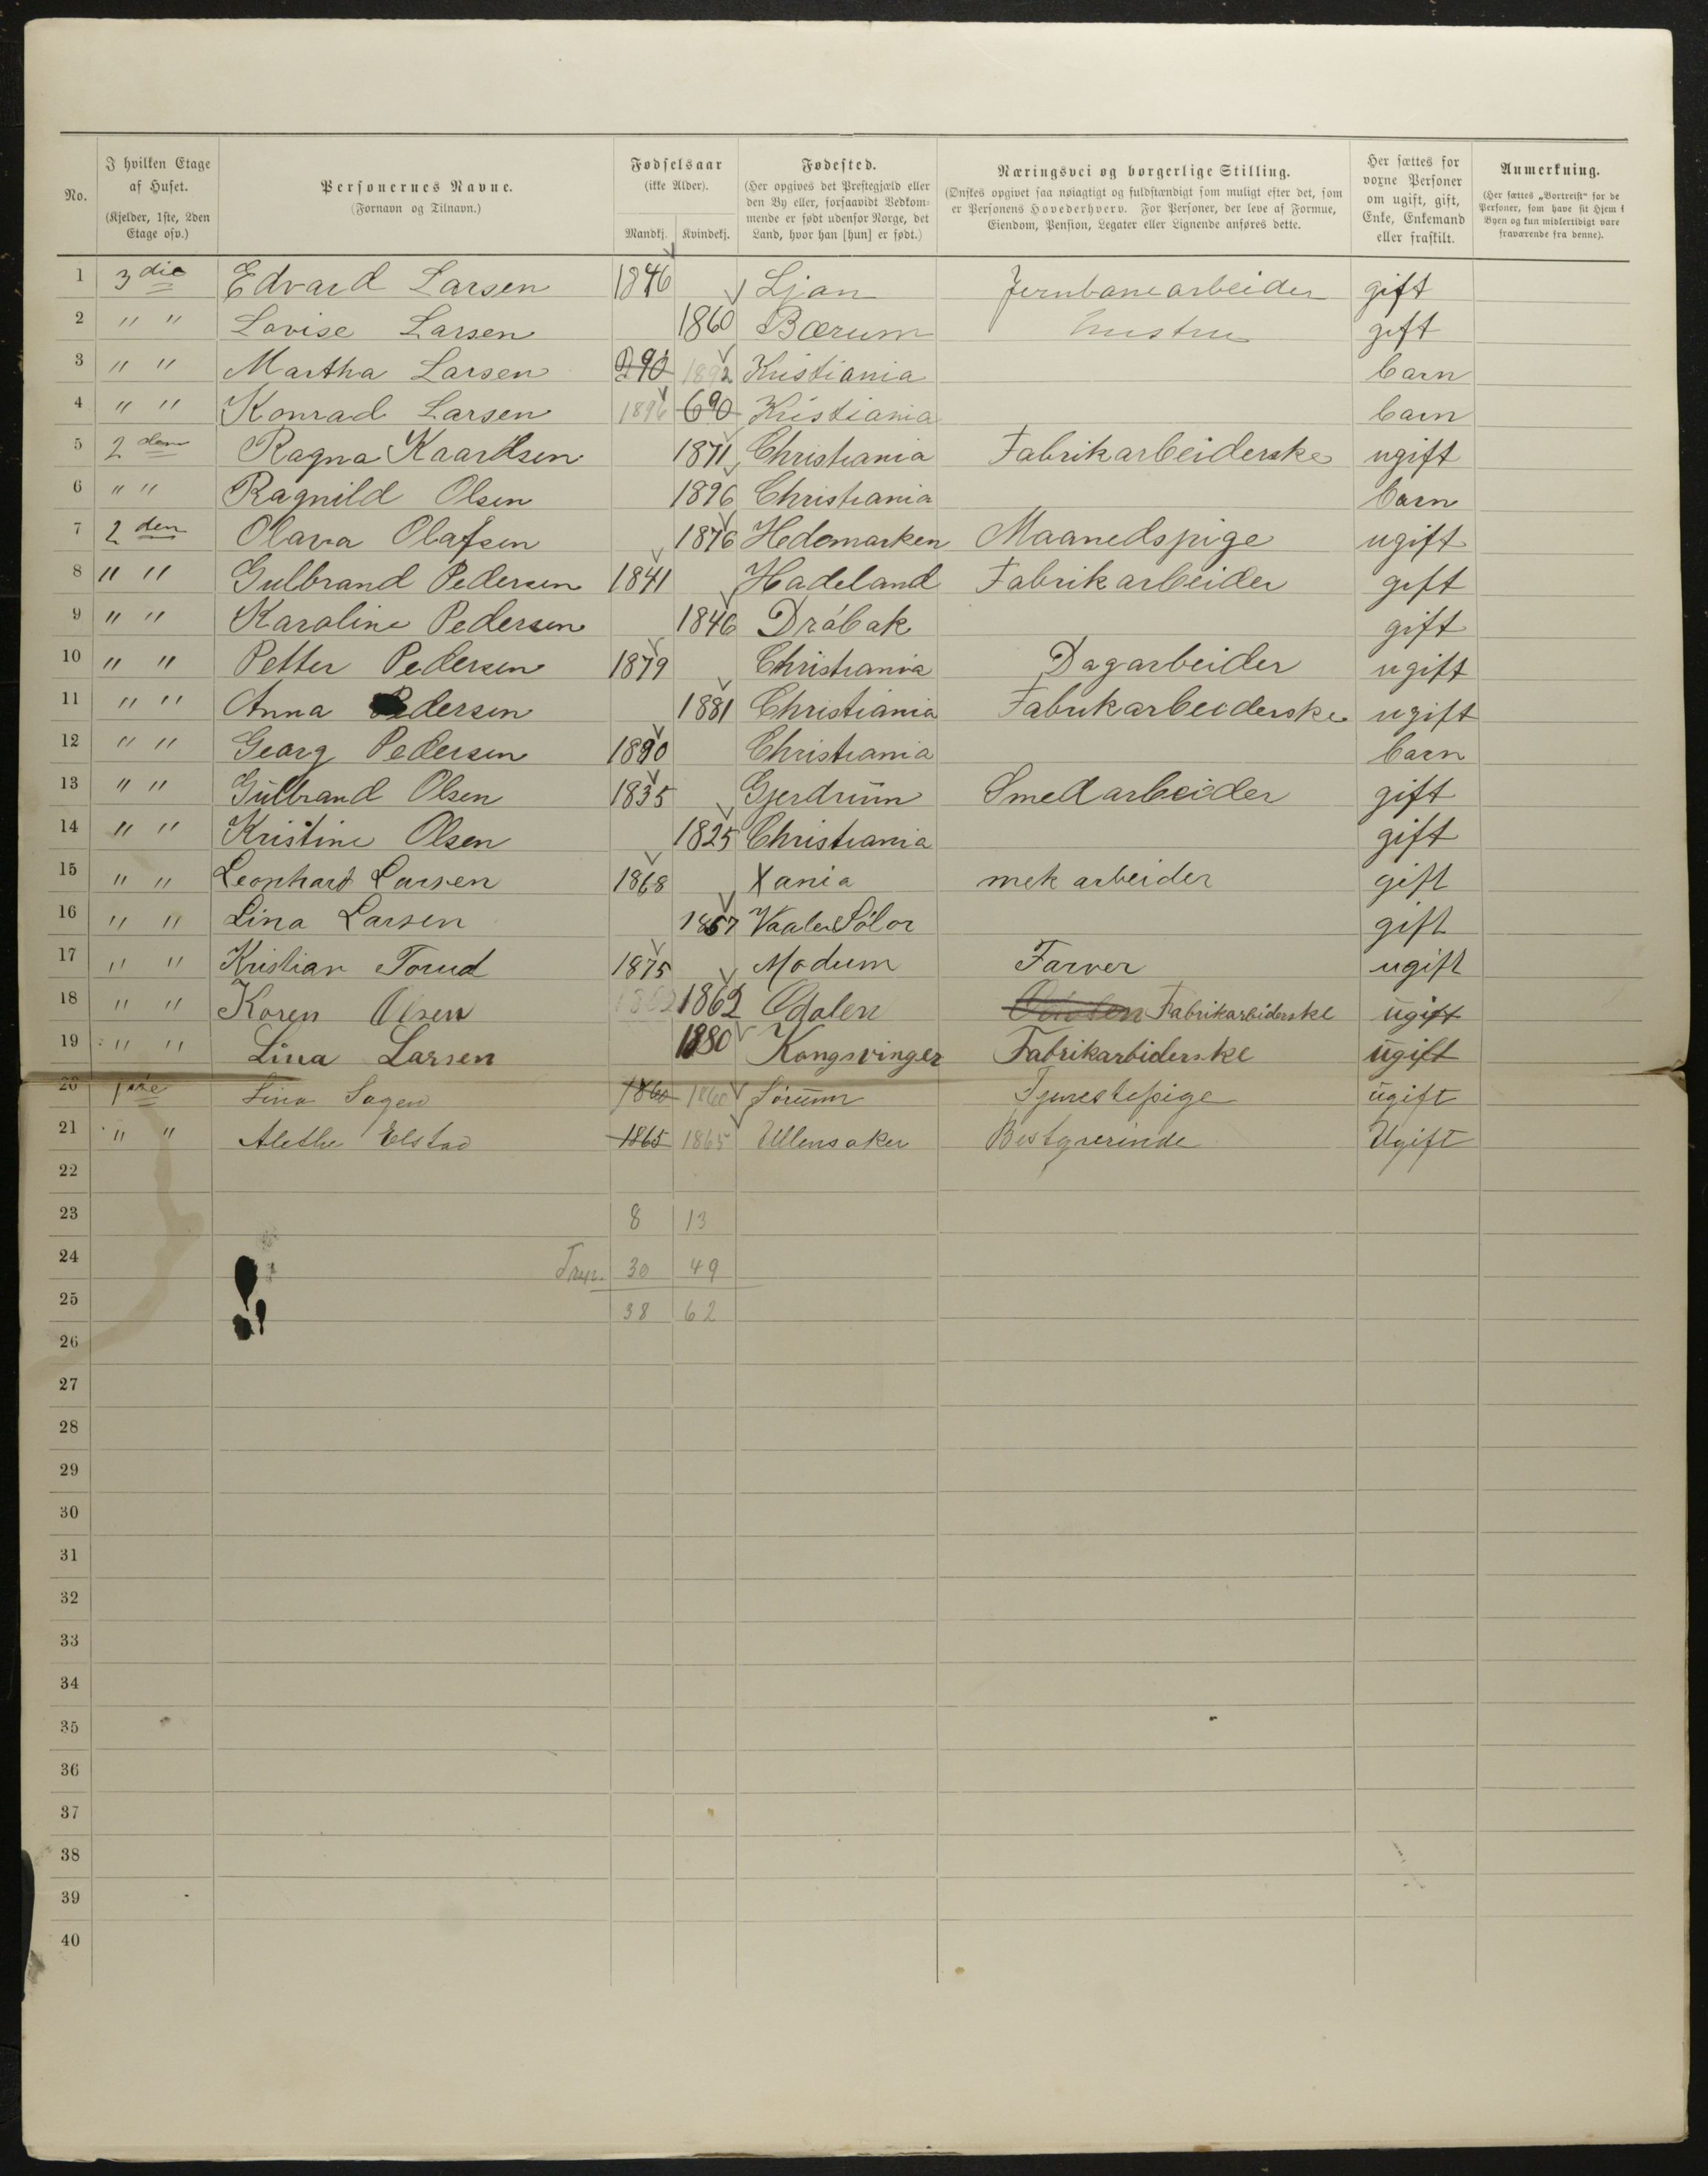 No.
I hvilken Etage af Huset.
(Kjelder, 1ste, 2den Etage osv.)
Personernes Navne.
(Fornavn og Tilnavn.)
Fødselsaar
(ikke Alder).
Mandkj. Kvindekj.
Fødested.
(Her opgives det Præstegjæld eller
den By eller, forsaavidt Vedkom-
mende er født udenfor Norge, det
Land, hvor han [hun] er født.)
Næringsvei og borgerlige Stilling.
(Ønskes opgivet saa nøiagtigt og fuldstændigt som muligt efter det, som
er Personens Hovederhverv. For Personer, der leve af Formue,
Eiendom, Pension, Legater eller Lignende anføres dette.
Her sættes for
voxne Personer
om ugift, gift,
Enke, Enkemand
eller fraskilt.
Anmerkning.
(Her sættes „Bortreist“ for de
Personer, som have sit Hjem i
Byen og kun midlertidigt vare
fraværende fra denne).
1 3die Edvard Larsen 1846 Ljan Jernbanearbeider gift
2 " " Lovise Larsen 1860 Bærum hustru gift
3 " " Martha Larsen 90 1892 Kristiania barn
4 " " Konrad Larsen 1896 690 Kristiania barn
5 2den Ragna Kaarlsen 1871 Christiania Fabrikarbeiderske ugift
6 " " Ragnild Olsen 1896 Christiania barn
7 2den Olava Olafsen 1876 Hedemarken Maanedspige ugift
8 " " Gulbrand Pedersen 1841 Hadeland Fabrikarbeider gift
9 " " Karoline Pedersen 1846 Dröbak gift
10 " " Petter Pedersen 1879 Christiania Dagarbeider ugift
11 " " Anna Pedersen 1881 Christiania Fabrikarbeiderske ugift
12 " " Georg Pedersen 1890 Christiania barn
13 " " Gulbrand Olsen 1835 Gjerdrum Smedarbeider gift
14 " " Kristine Olsen 1825 Christiania gift
15 " " Leonhard Larsen 1868 Xania mek arbeider gift
16 " " Lina Larsen 1867 Vaaler Sölor gift
17 " " Kristian Torud 1875 Modum Farver ugift
18 " " Karen Olsen 1862 1862 Odalen Fabrikarbiderske ugift
19 " " Lina Larsen 1880 Kongsvinger Fabrikarbiderske ugift
20 1ste Lina Sagen 1860 1860 Sörum Tjenestepige ugift
21 " " Alethe Elstad 1865 1865 Ullensaker Bestyrerinde Ugift
22
23 8 13
24 30 49
25 38 62
26
27
28
29
30
31
32
33
34
35
36
37
38
39
40